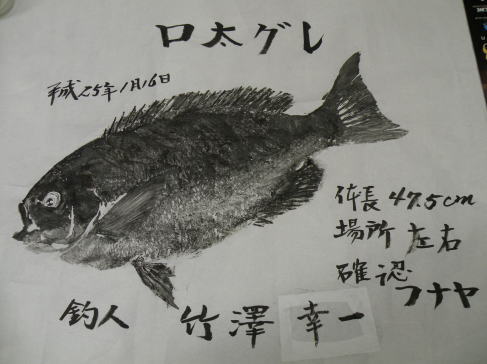 口太グレ
平成25年1月16日
体長 47.5cm
場所 左右
確認 フナヤ
釣人 竹澤 幸一